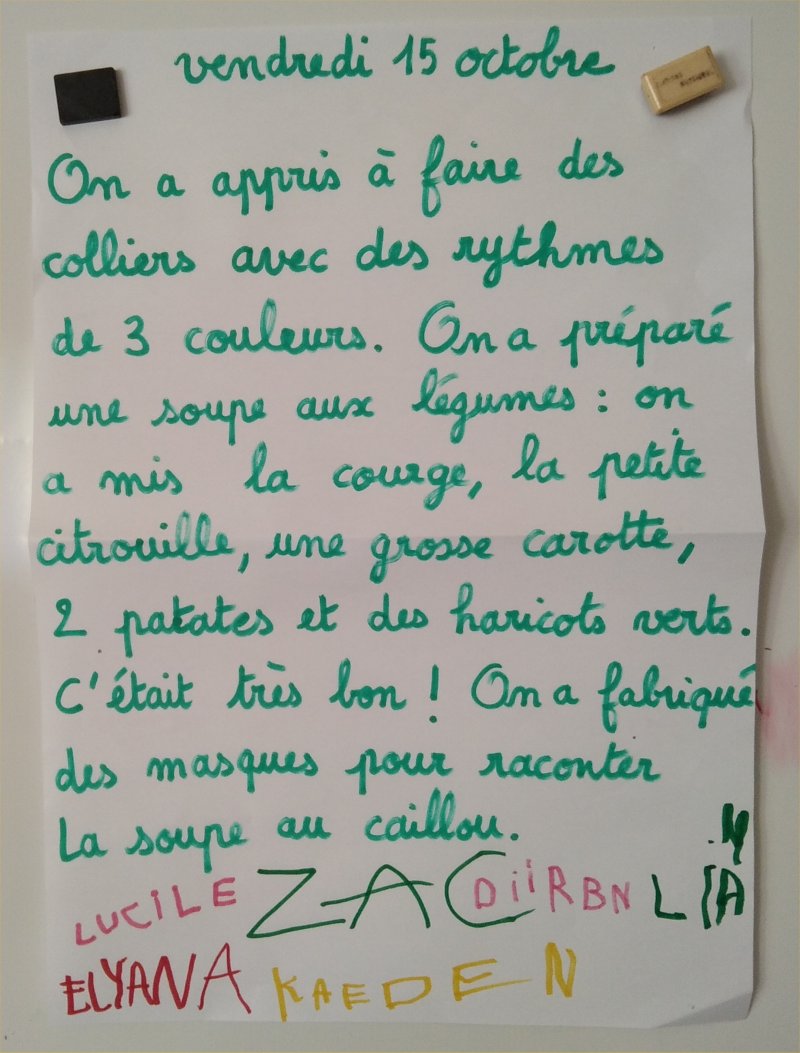 vendredi 15 octobre
On a appris à faire des
colliers avec des rythmes
de 3 couleurs. On a préparé
une soupe aux légumes : on
a mis la courge, la petite
citrouille, une grosse carotte,
2 patates et des haricots verts.
C'était très bon ! On a fabriqué
des masques pour raconter
La soupe au caillou.
LUCILE ZAC
ELYANA KAEDEN